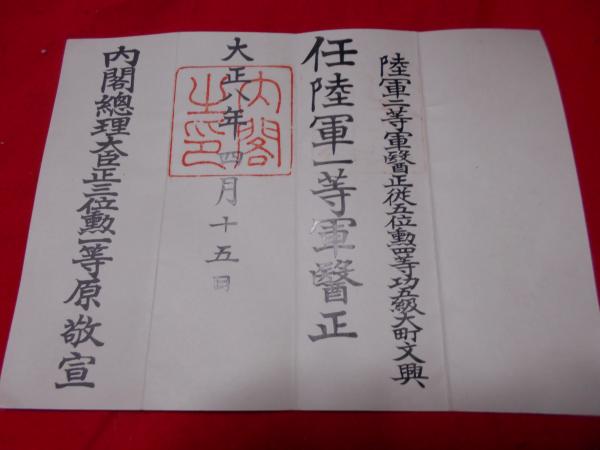 陸軍二等軍醫正從五位勲四等功五級大町文興
任陸軍一等軍醫正
大正八年四月十五日
内閣之印
内閣總理大臣正三位勲一等原敬宣